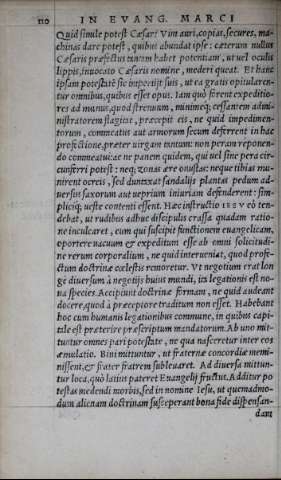 110 IN EVANG. MARCI
Quid simile potest Cæsar? Vim auri, copias, secures, ma-
chinas dare potest, quibus abundat ipse: cæterum nullus
Cæsaris præfectus unquam habet potentiam, ut uel oculis
lippis, inuocato Cæsaris nomine, mederi queat. Et hanc
ipsam potestatē sic impertijt suis, ut ea gratis opitularen-
tur omnibus, quibus esset opus. Iam quò forent expeditio-
res ad munus, quod strenuum, minimeq; cessantem admi-
nistratorem flagitat, præcepit eis, ne quid impedimen-
torum, commeatus aut armorum secum deferrent in hac
profectione, præter uirgam tantum: non peram reponen-
do commeatui: ac ne panem quidem, qui uel sine pera cir-
cunferri potest: neq; zonas ære onustas: neque tibias mu-
nirent ocreis, sed duntaxat sandalijs plantas pedum ad-
uersus saxorum aut ueprium iniuriam defenderent: sim-
pliciq; ueste contenti essent. Hæc instructio IESV eò ten-
debat, ut rudibus adhuc discipulis crassa quadam ratio-
ne inculcaret, eum qui suscipit functionem euangelicam,
oportere uacuum & expeditum esse ab omni solicitudi-
ne rerum corporalium, ne quid interueniat, quod profe-
ctum doctrinæ cœlestis remoretur. Vt negotium erat lon
gè diuersum à negotijs huius mundi, ita legationis est no-
ua species. Accipiunt doctrinæ formam, ne quid audeant
docere, quod à præceptore traditum non esset. Habebant
hoc cum humanis legationibus commune, in quibus capi-
tale est præterire præscriptum mandatorum. Ab uno mit-
tuntur omnes pari potestate, ne qua nasceretur inter eos
æmulatio. Bini mittuntur, ut fraternæ concordiæ memi-
nissent, & frater fratrem subleuaret. Ad diuersa mittun-
tur loca, quò latius pateret Euangelij fructus. Additur po
testas medendi morbis, sed in nomine Iesu, ut quemadmo-
dum alienam doctrinam susceperant bona fide dispensan-
dam